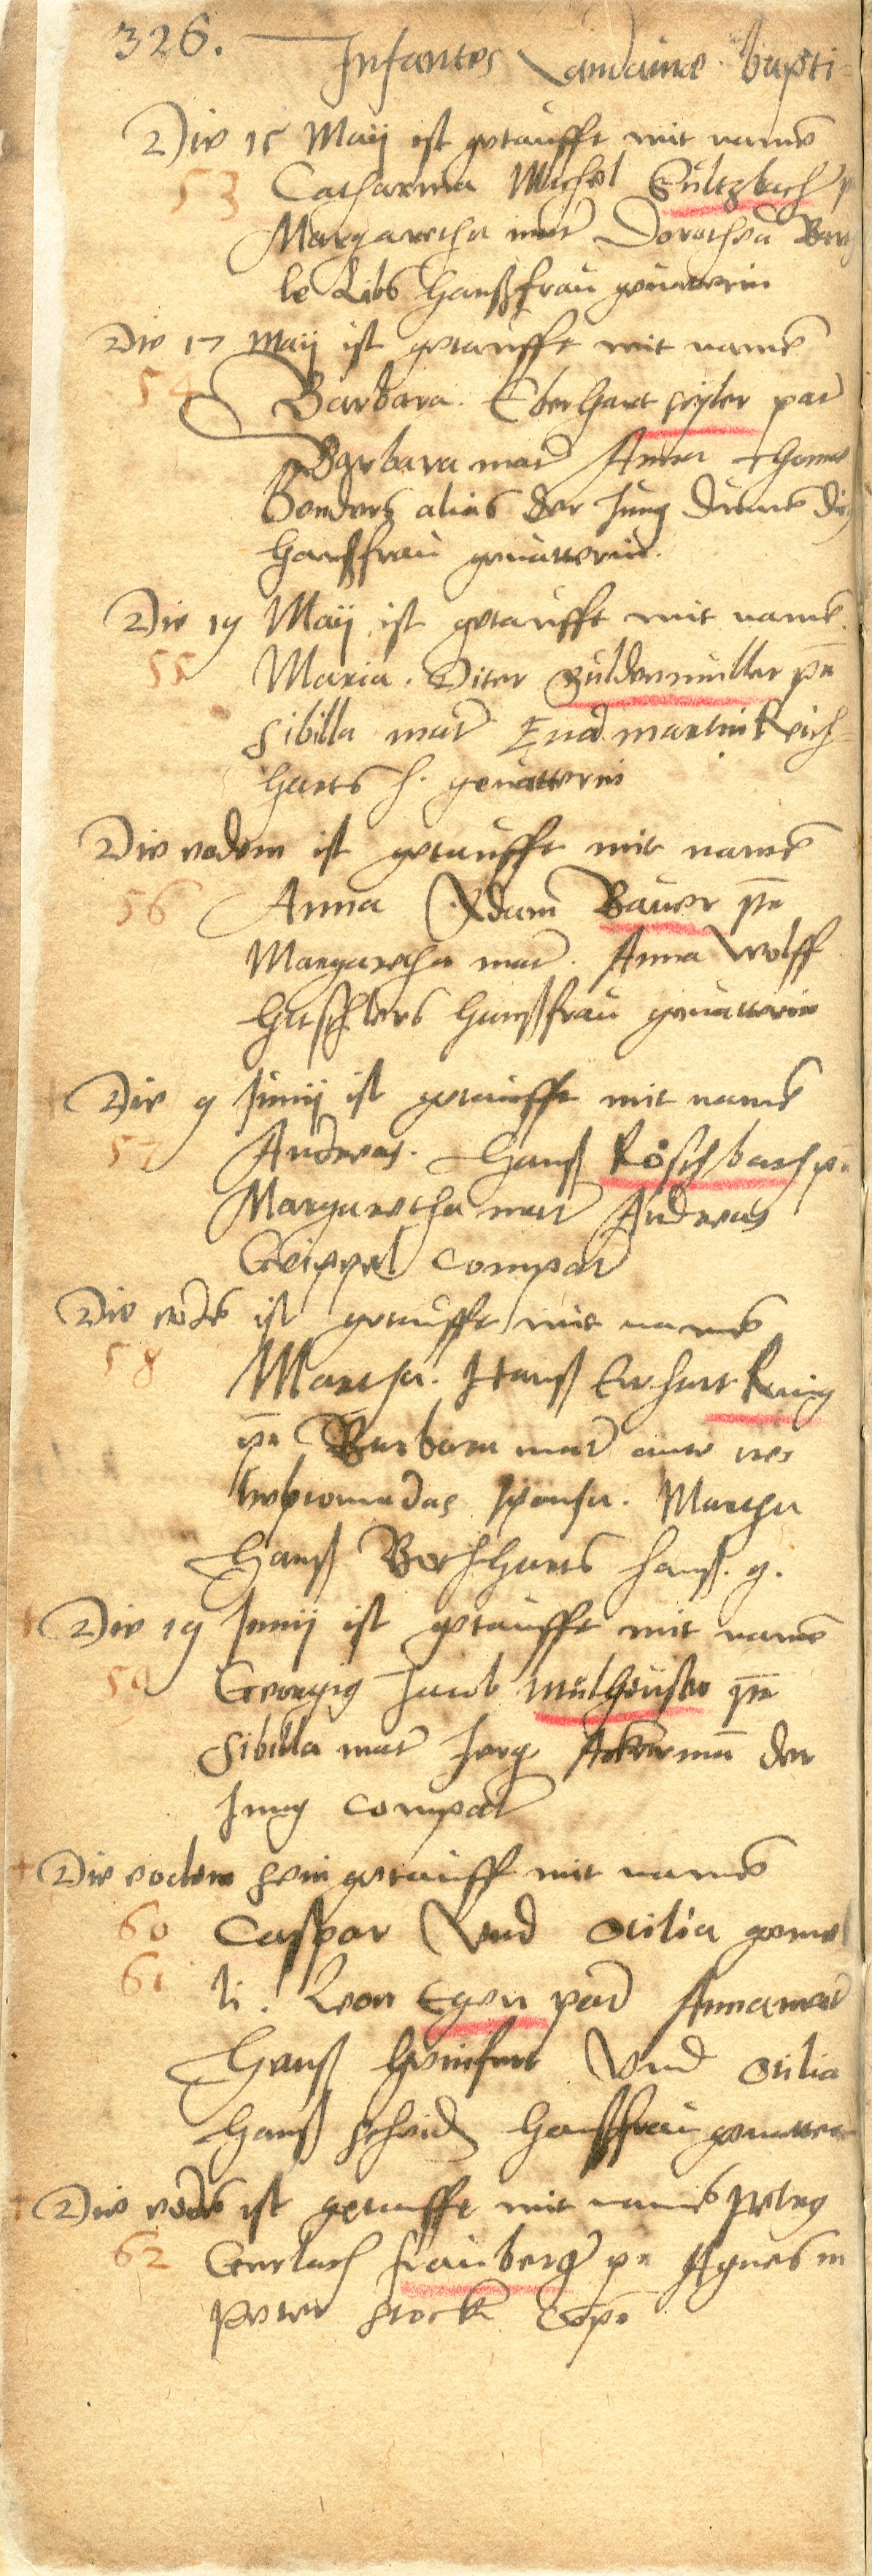 326. Infantes Laudanae bapti=
Die 15 Maij ist getaufft mit name
53 Catharina Michel Sultzbach p
Margaretha mat Dorothea
le Libs Haußfrau gevatterin
Die 17 Maij ist getaufft mit name
54 Barbara. Eberhart seyler pat
Barbara mat Anna
Benders alias der Jung
Haußfrau gevatterin.
Die 19 Maij ist getaufft mit name
55 Maria. Diter Guldenmuller pr
Sibilla mat Eva martin Reich=
harts h. gevatterin
Die eodem ist getaufft mit name
56 Anna Adam Bauer pr
Margaretha mat. Anna Wolff
Haußfrau gevatterin
Die 9 Junij ist getaufft mit name
57 Andreas. Hanß Röschbach p
Margaretha mat Andreas
Geippel compat
Die eode ist getaufft mit name
58 Martha. Hanß Erhart
pr Barbara mat ante
hebdomadas Martha
Hanß hauß. g.
Die 19 Junij ist getaufft mit name
59 Georgig Jacob Mulheuser pr
Sibilla mat Jorg Ackerman der
Jung compat
Die eodem sein getauff mit name
60 Caspar Und Otilia gemel
61 li. Leon Egen pat Anna mat
Hanß Und Otilia
Hanß Haußfrau gevatter
Die eode ist getaufft mit name
62 Gerlach frauberg pr Agnes m
Peter Stock